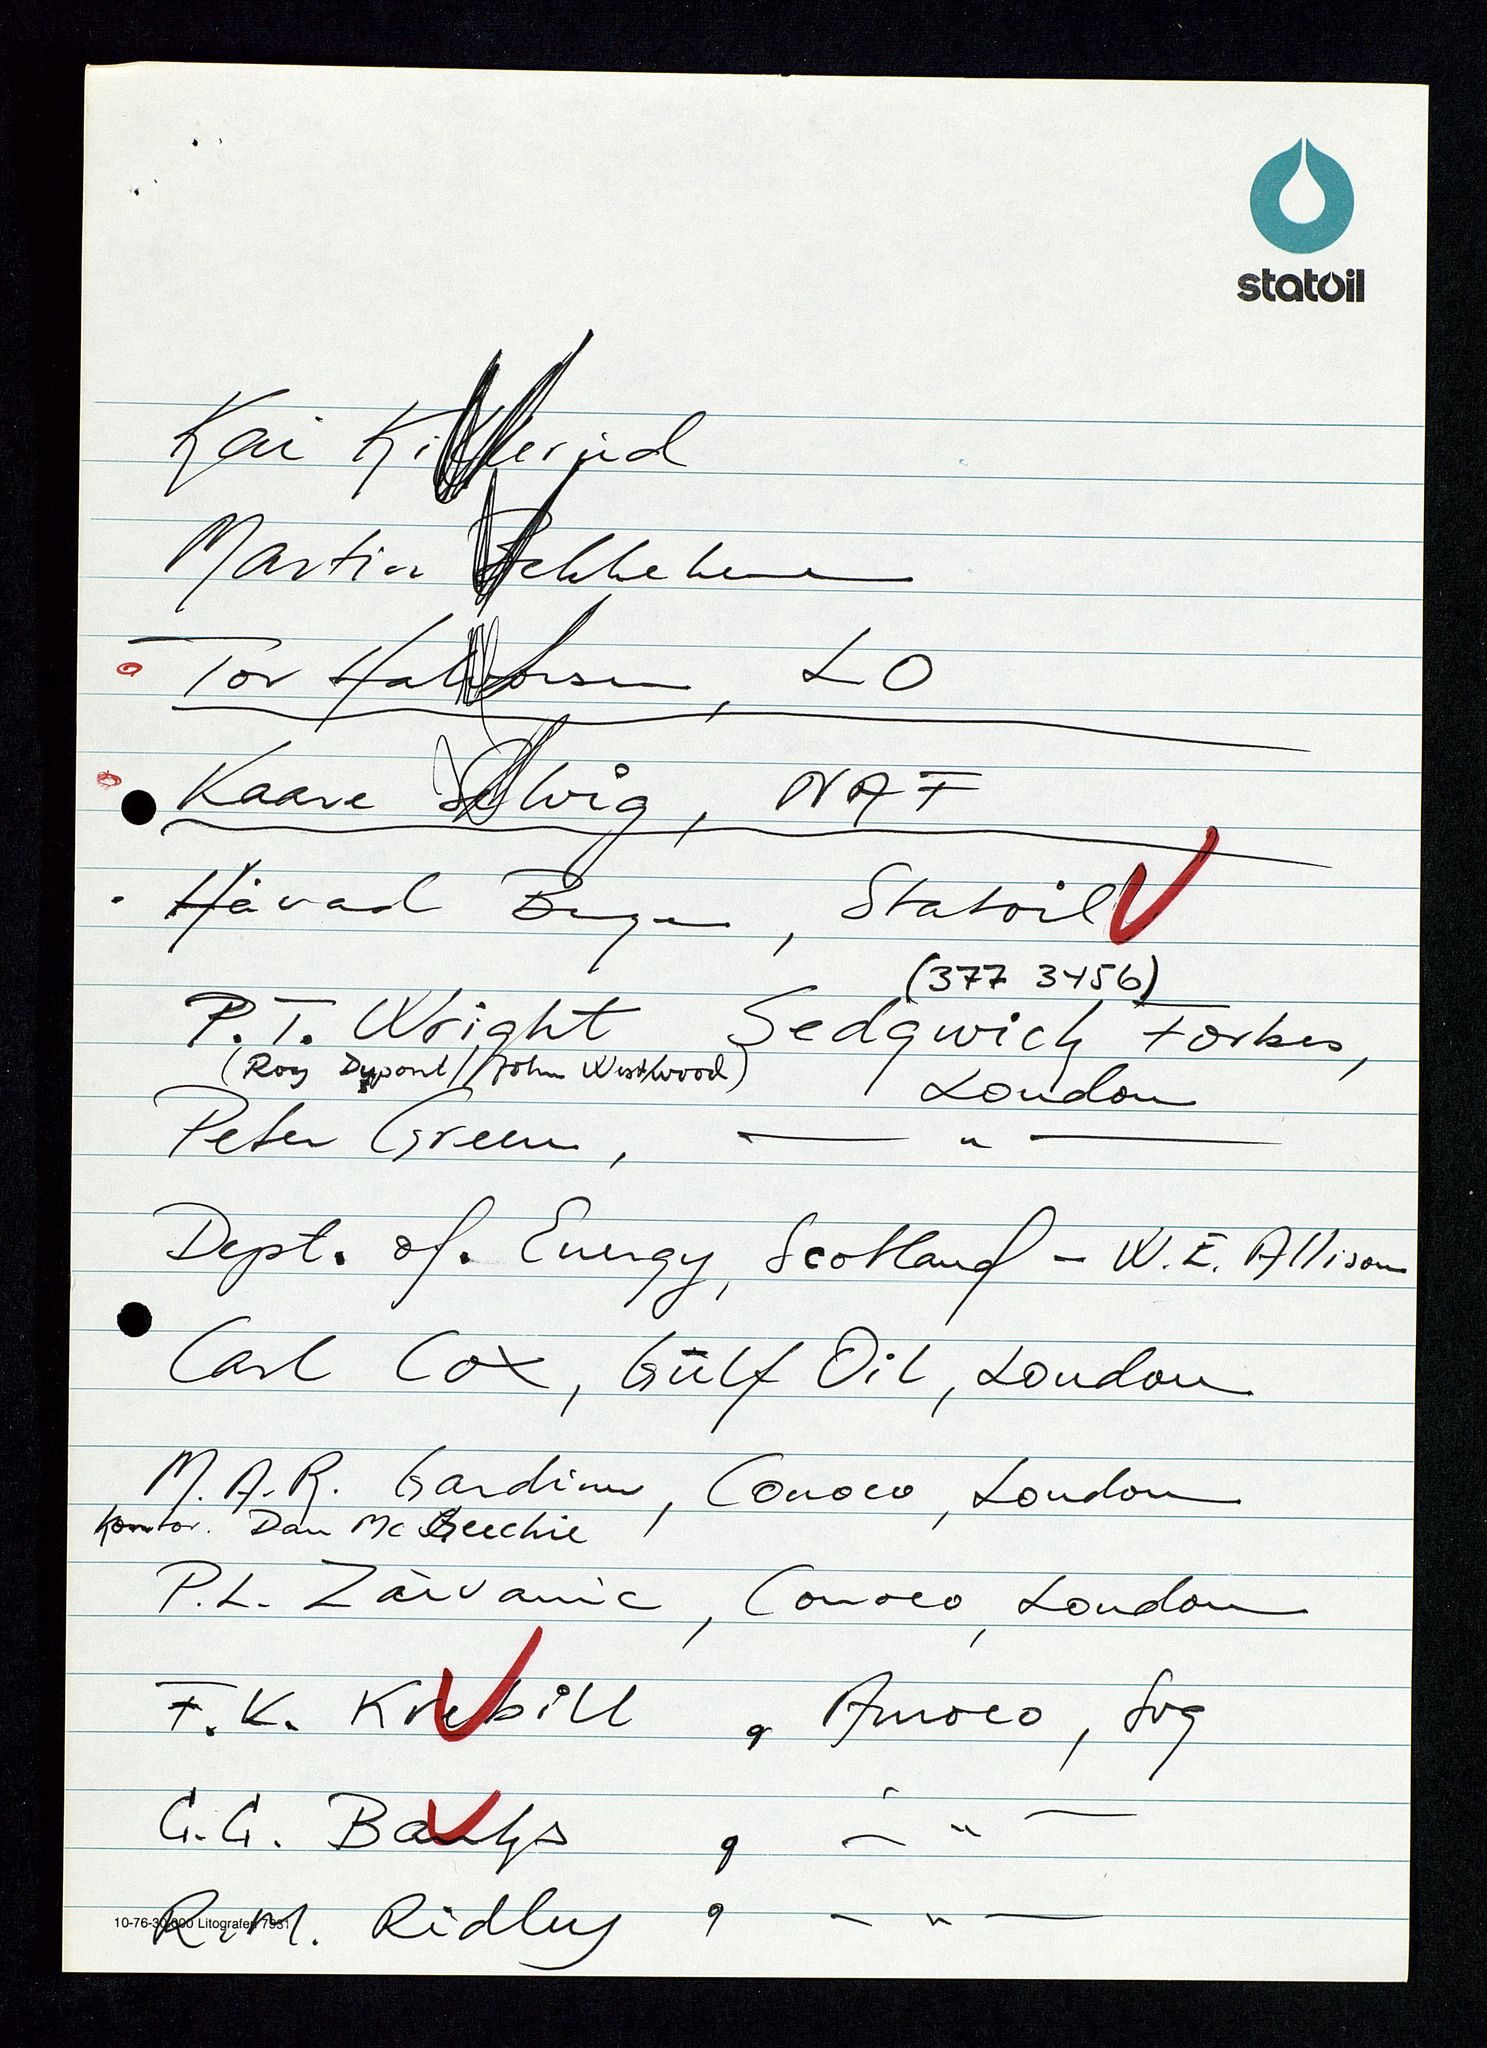 statoil
Kai Killerud
Martin Bekkeheien
Tor Halvorsen, LO
Kaare Selvig, NAF
Håvad Berge, Statoil
(377 3456)
P.T. Wright Sedgwick Forbes,
(Roy Dupont/John Westwood) London
Peter Green, — " —
Dept. of. Energy, Scotland - W.E. Allison
Carl Cox, Gulf Oil, London
M.A.R. Gardiner, Conoco, London
Dan McGeechie
P.L. Conoco, London
F.K. Krebill, Amoco, Svg
G.G. Banks, — " —
R.M. Ridley, — " —
10-76-30.000 Litografen 7931